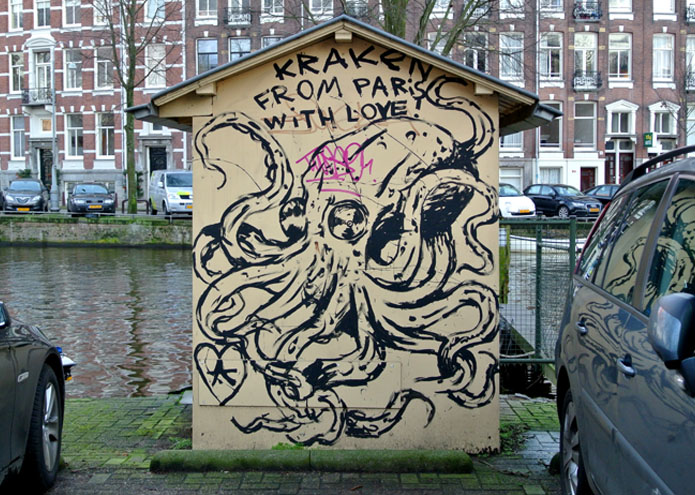 KRAKEN
FROM PARIS
WITH LOVE